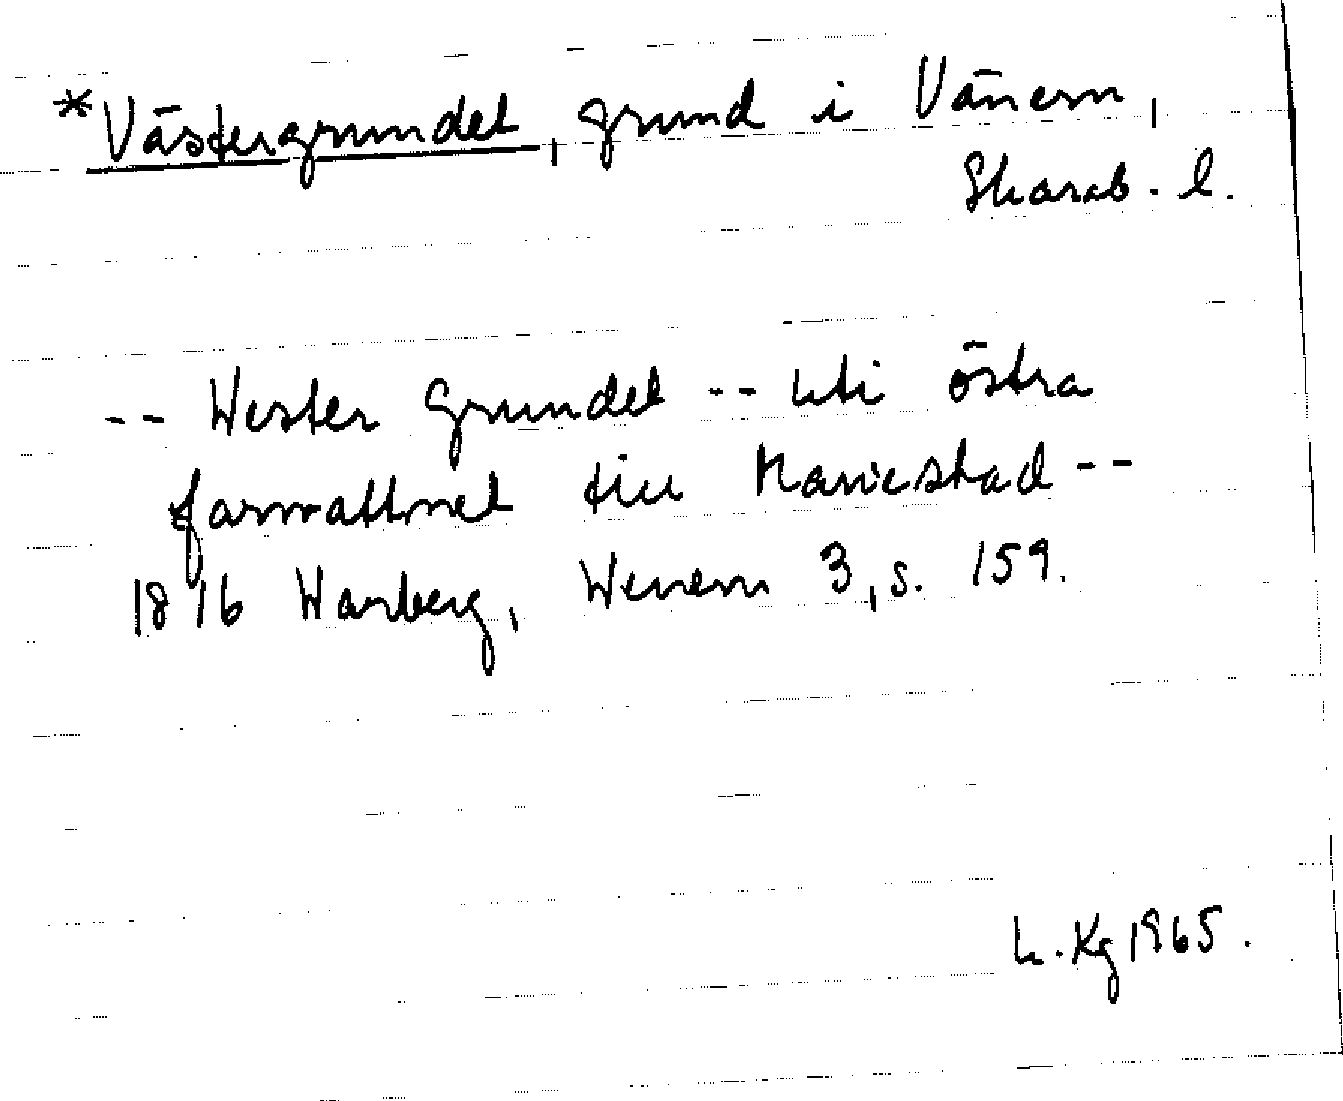 *Västergrundet, grund i Vänern,
Skarab. l.
-- Wester Grundet -- uti östra
farvattnet till Mariestad --
1876 Warberg, Wenern 3, s. 159.
L. Kg 1965.